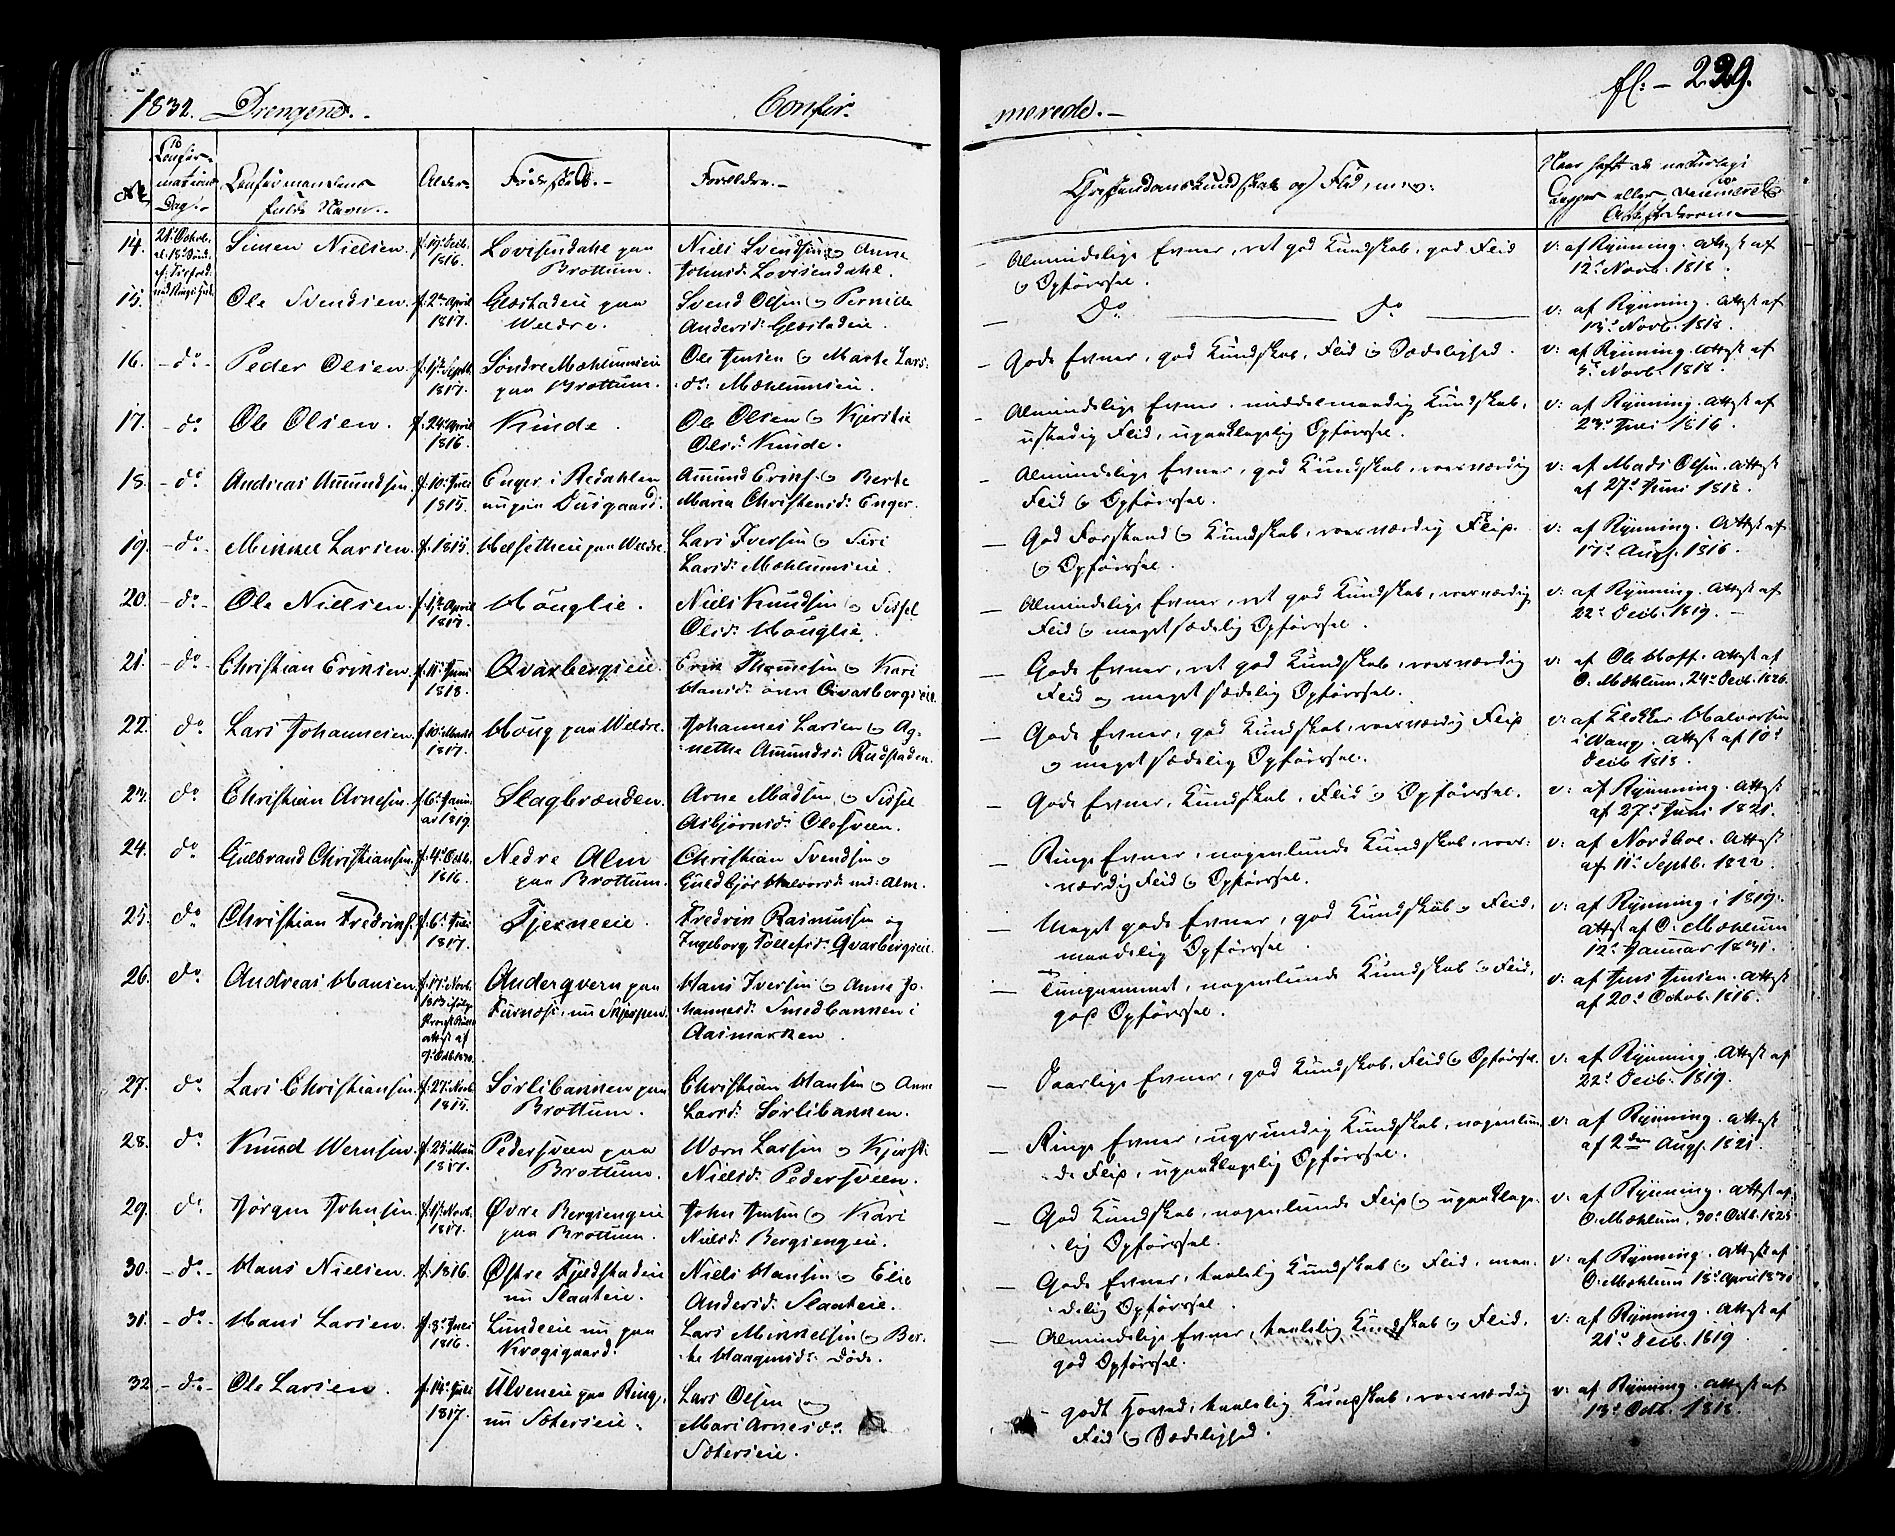 1832. Drengene.
Confir-
merede.
fl. 229.
No
Confir-
mations
Dag.
Confirmandens
fulde Navn.
Alder
Fødested.
Forældre.
Christendomskundskab og Flid, m. v.
14. Simen Nielsen f. 1816. Lovisendahl paa Brottum. Niels Svendsen og Anne Johnsd: Lovisendahl.
Almindelige Evner, ret god Kundskab, god Flid og Opførsel.
v: af Rynning. Attest af 12t Novb. 1818.
15. Ole Svendsen f. 2den April 1817. paa Veldre. Svend Olsen og Pernille Andersd:
do do
v: af Rynning. Attest af 13t Novb. 1818.
16. do Peder Olsen 1817. Søndre Mæhlumseie paa Brottum. Ole Jensen og Marte Larsd: Mæhlumseie.
Gode Evner, god Kundskab, Flid og Sædelighed.
v: af Rynning. Attest af Novb. 1818.
17. do Ole Olsen. f. 24 April 1816. Kinde. Ole Olsen og Kjerstie Olsd: Kinde.
Almindelige Evner, middelmaadig Kundskab, Flid, upaaklagelig Opførsel.
v: af Rynning. Attest af 23t 1816.
18. do Andreas Amundsen f. 10 Juli 1815. Enger i Redahlen nu paa Amund Eriks. og Berte Maria Christensd: Enger.
Almindelige Evner, god Kundskab, roesværdig Flid og Opførsel.
v: af Mads Olsen. Attest af 27t Juni 1818.
19. do Mikkel Larsen. f. 1815. Helsetheie paa Veldre. Lars Iversen og Siri Larsd: Mæhlumseie.
God Forstand og Kundskab, roesværdig Flid og Opførsel.
v: af Rynning. Attest af 17t Augs. 1816.
20. do Ole Nielsen. April 1817. Houglie. Niels Knudsen og Sissel Olsd: Houglie.
Almindelige Evner, ret god Kundskab, roesværdig Flid og meget sædelig Opførsel.
v: af Rynning. Attest af 22t Decb. 1819.
21. do Christian Eriksen. f. 11t Juni 1818. Qvarbergseie. Erik Thommesen og Kari Hansd: Qvarbergseie.
Gode Evner, ret god Kundskab, roesværdig Flid og meget sædelig Opførsel.
v: af Ole Hoff. Attest af O. Mæhlum, 24t Decb. 1826.
22. do Lars Johannesen. 1817. Houg paa Veldre. Johannes Larsen og Agnethe Amundsd: Rudstaden.
Gode Evner, god Kundskab, roesværdig Flid og meget sædelig Opførsel.
v: af Klokker Halvorsen i Vang. Attest af 10t Decb 1818.
23. do Christian Arnesen. f. 6t Januar 1819. Slagbrænden. Arne Madsen og Sissel Asbjørnsd: Olesveen.
Gode Evner, Kundskab, Flid og Opførsel.
v: af Rynning. Attest af 27t Juni 1821.
24. do Gulbrand Christiansen f. 4t Octb. 1816. Nedre Alm paa Brottum. Christian Svendsen og Guldbjør Halvorsd: ned: Alm.
Ringe Evner, nogenlunde Kundskab, roesværdig Flid og Opførsel.
v: af Nordboe. Attest af 11t Septb. 1822.
25. do Christian Fredriks. f. 6t 1817. Tjerneeie. Fredrik Rasmussen og Ingeborg Tollefsd: Qvarbergseie.
Meget gode Evner, god Kundskab og Flid, Opførsel.
v: af Rynning i 1819. Attest af O. Mæhlum 12t Januar 1831.
26. do Andreas Hansen f. 17t Novb. Anderqvern paa Furnæs, nu Skjeppen. Hans Iversen og Anne Johannesd: Smedbakken i Aasmarken
nogenlunde Kundskab og Flid, god Opførsel.
v: af Jens Jensen. Attest af 20t Octob. 1816.
27. do Lars Christiansen f. 27t Novb 1815. Sørlibakken paa Brottum. Christian Hansen og Anne Larsd: Sørlibakken.
Daarlige Evner, god Kundskab, Flid og Opførsel.
v: af Rynning. Attest af 22t Decb. 1819.
28. do Knud Wernsen. 1817. Pedersveen paa Brottum. Wern Larsen og Kjersti Nielsd: Pedersveen.
Ringe Evner, ugrundig Kundskab, nogenlunde Flid, upaaklagelig Opførsel.
v: af Rynning. Attest af 2den Augs. 1821.
29. do Jørgen Johnsen. Novb. 1817. Øvre Bergsengeie paa Brottum. John Jensen og Kari Nielsd: Bergsengeie.
God Kundskab, nogenlunde Flid og upaaklagelig Opførsel.
v: af Rynning. Attest af O. Mæhlum, 30t Octb. 1825
30. do Hans Nielsen. f. 1816. Østre Fjeldstadeie nu Slaateie. Niels Hansen og Elie Andersd: Slaateie.
Gode Evner, taalelig Kundskab og Flid, Opførsel.
v: af Rynning. Attest af O. Mæhlum 18t April 1830
31. do Hans Larsen. f. 1816. Lundeeie nu paa Krogsgaard. Lars Mikkelsen og Berte Haagensd: døde.
Almindelige Evner, taalelig Kundskab og Flid, god Opførsel.
v: af Rynning. Attest af 21t Decb. 1819.
32 do Ole Larsen. f. 14t Juli 1817. Ulveneie paa Rings. nu Sæterseie. Lars Olsen og Mari Arnesd: Sæterseie.
godt Hoved, taalelig Kundskab, roesværdig Flid og Sædelighed.
v: af Rynning. Attest af 13t Octb. 1818.